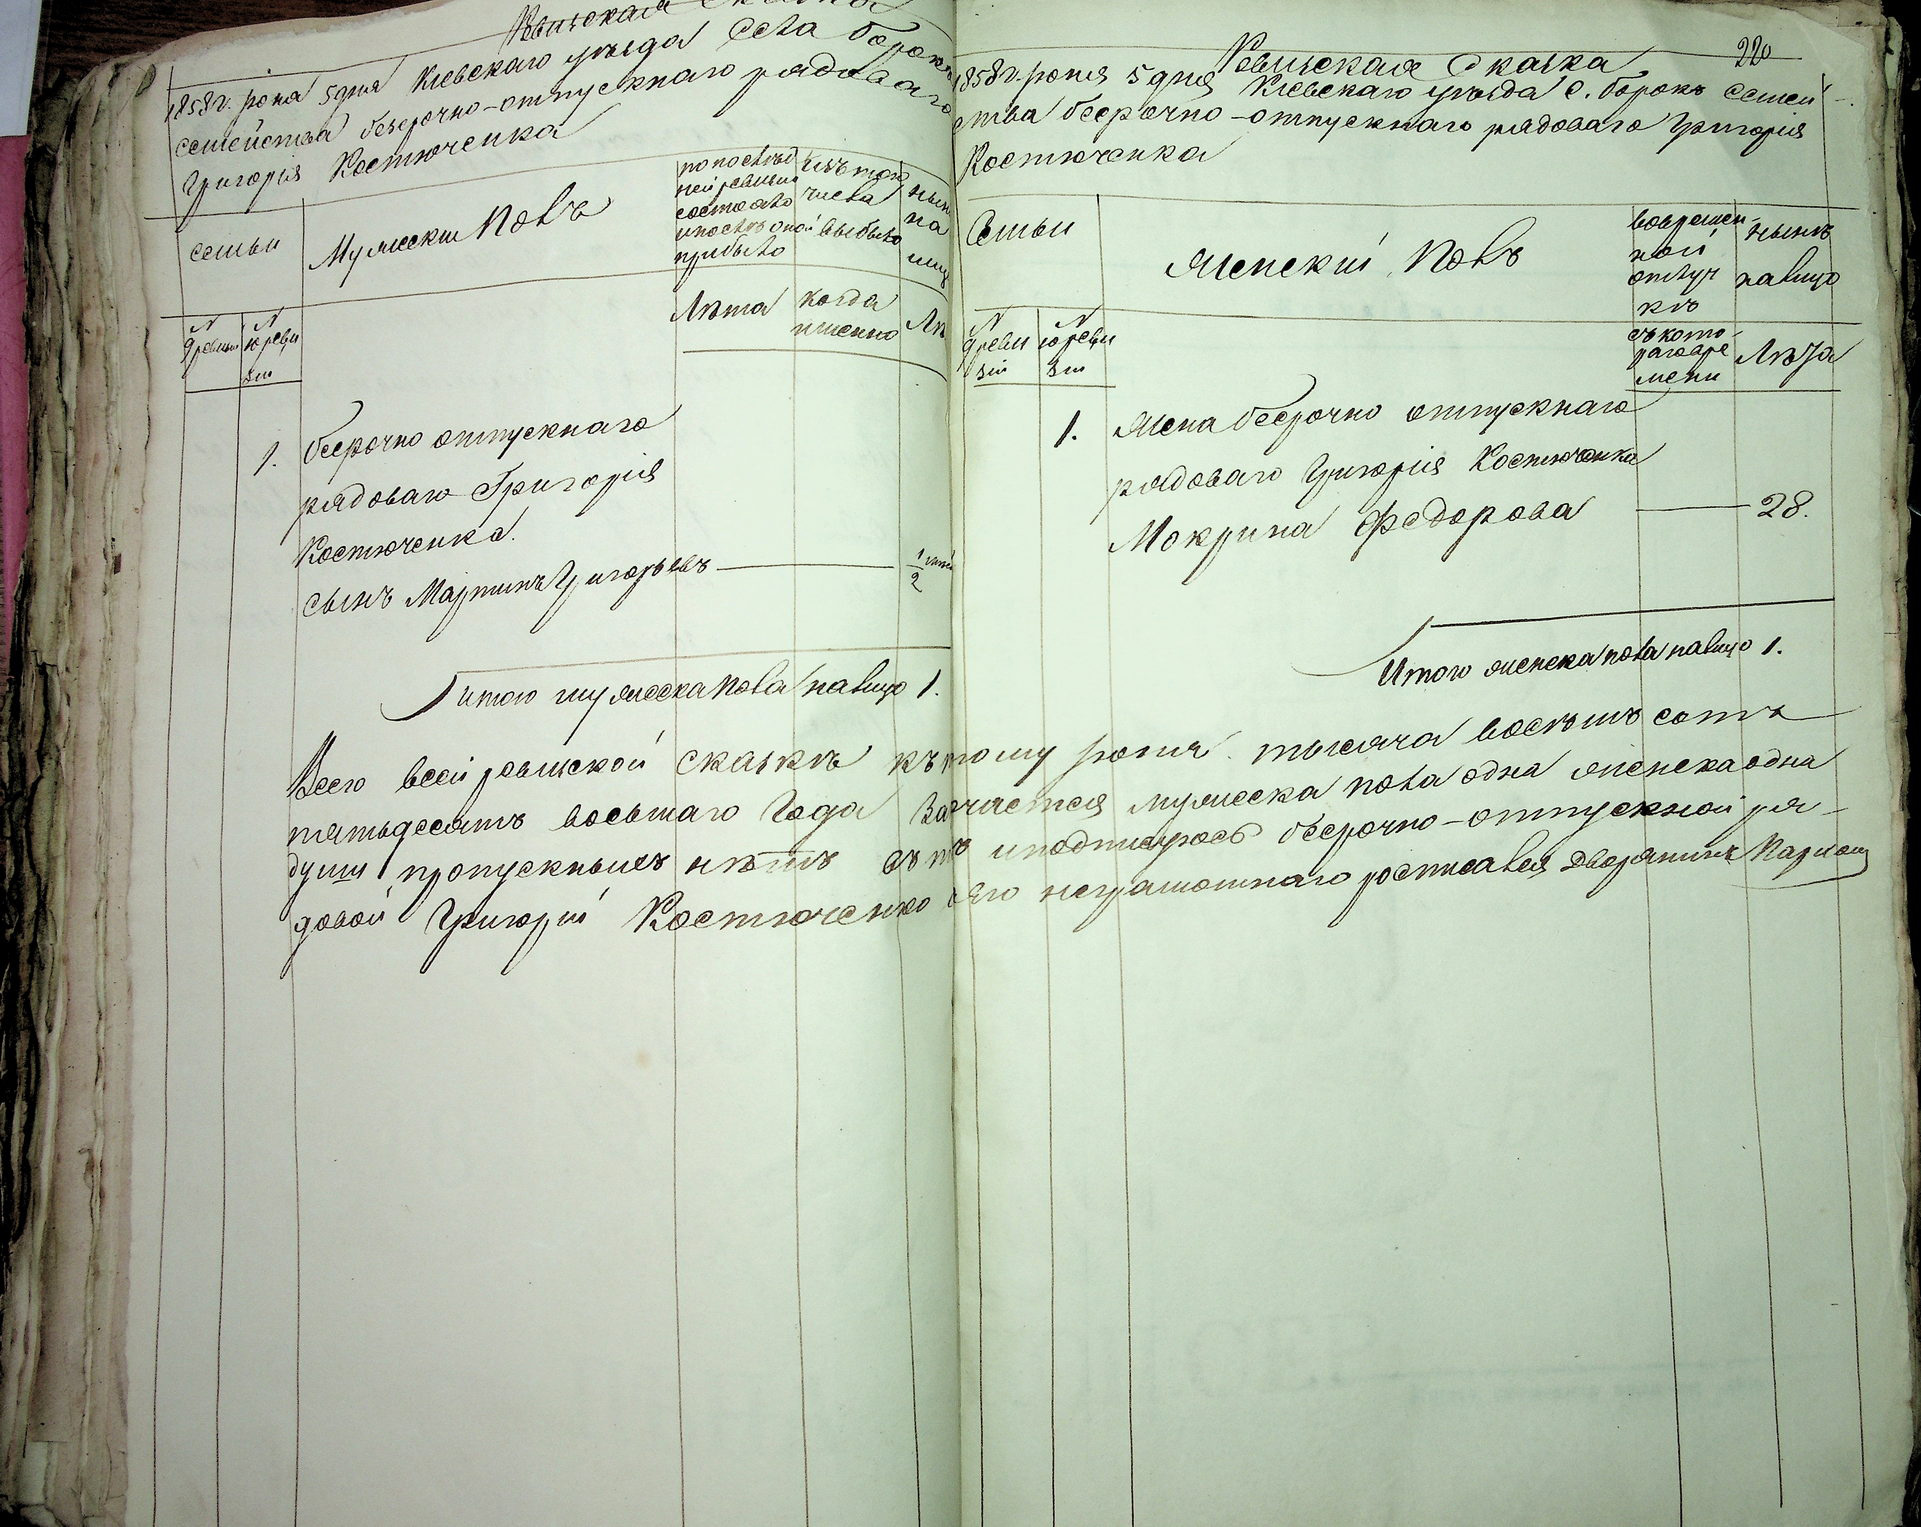 Ревизская Сказка
1858 г. Іюня 5 дня Кіевскаго уезда Села борокъ
семейства безсрочно-отпускнаго рядоваго
Григорія Костюченка
семьи
Мужескій Полъ
по послед
ней ревизіи
состояло
и после оной
прибыло
изъ того
числа
выбыло
ныне
на
лицо
Лета
когда
именно
Ле
№
9 ревизіи
№
10 реви
зіи
1.
бесрочно отпускнаго
рядоваго Григорія
Костюченка.
сынъ Мартинъ Григорьевъ
1/2
Итого мужеска пола налицо 1.
220
Ревизская Сказка
1858 г. Іюня 5 дня Кіевскаго уезда С. борокъ Семей-
ства бесрочно-отпускнаго рядоваго Григорія
Костюченка
Семьи
Женскій Полъ
во времен-
ной
отлуч
ке
ныне
налицо
№
9 реви
зіи
№
10 реви
зіи
съ кото-
раго вре
мени
Лета
1.
Жена бесрочно отпускнаго
рядоваго Григорія Костюченка
Мокрина Федорова
28.
Итого женска пола налицо 1.
Всего всей ревизской сказке къ тому Іюня тысяча восемь сотъ
пятьдесятъ восьмаго Года значится мужеска пола одна женска одна
души пропускныхъ нетъ въ томъ и подписуюсь бесрочно-отпускной ря-
довой Григорій Костюченко а за его неграмотнаго росписался Дворянинъ